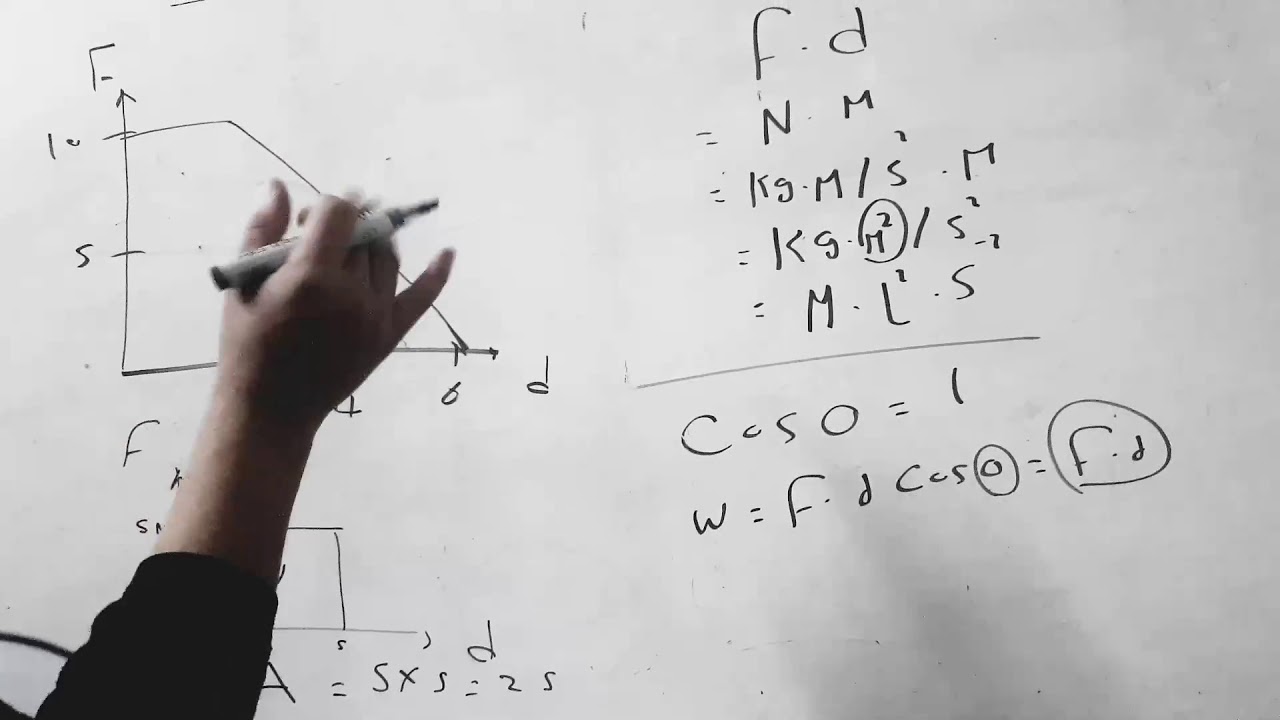 F
10
5
4
6
d
F
5
5
d
A = 5 x 5 = 25
F . d
= N . M
= Kg . M / S² . M
= Kg . M² / S²
= M . L² . S⁻²
Cos 0 = 1
W = F . d Cos 0 = F . d